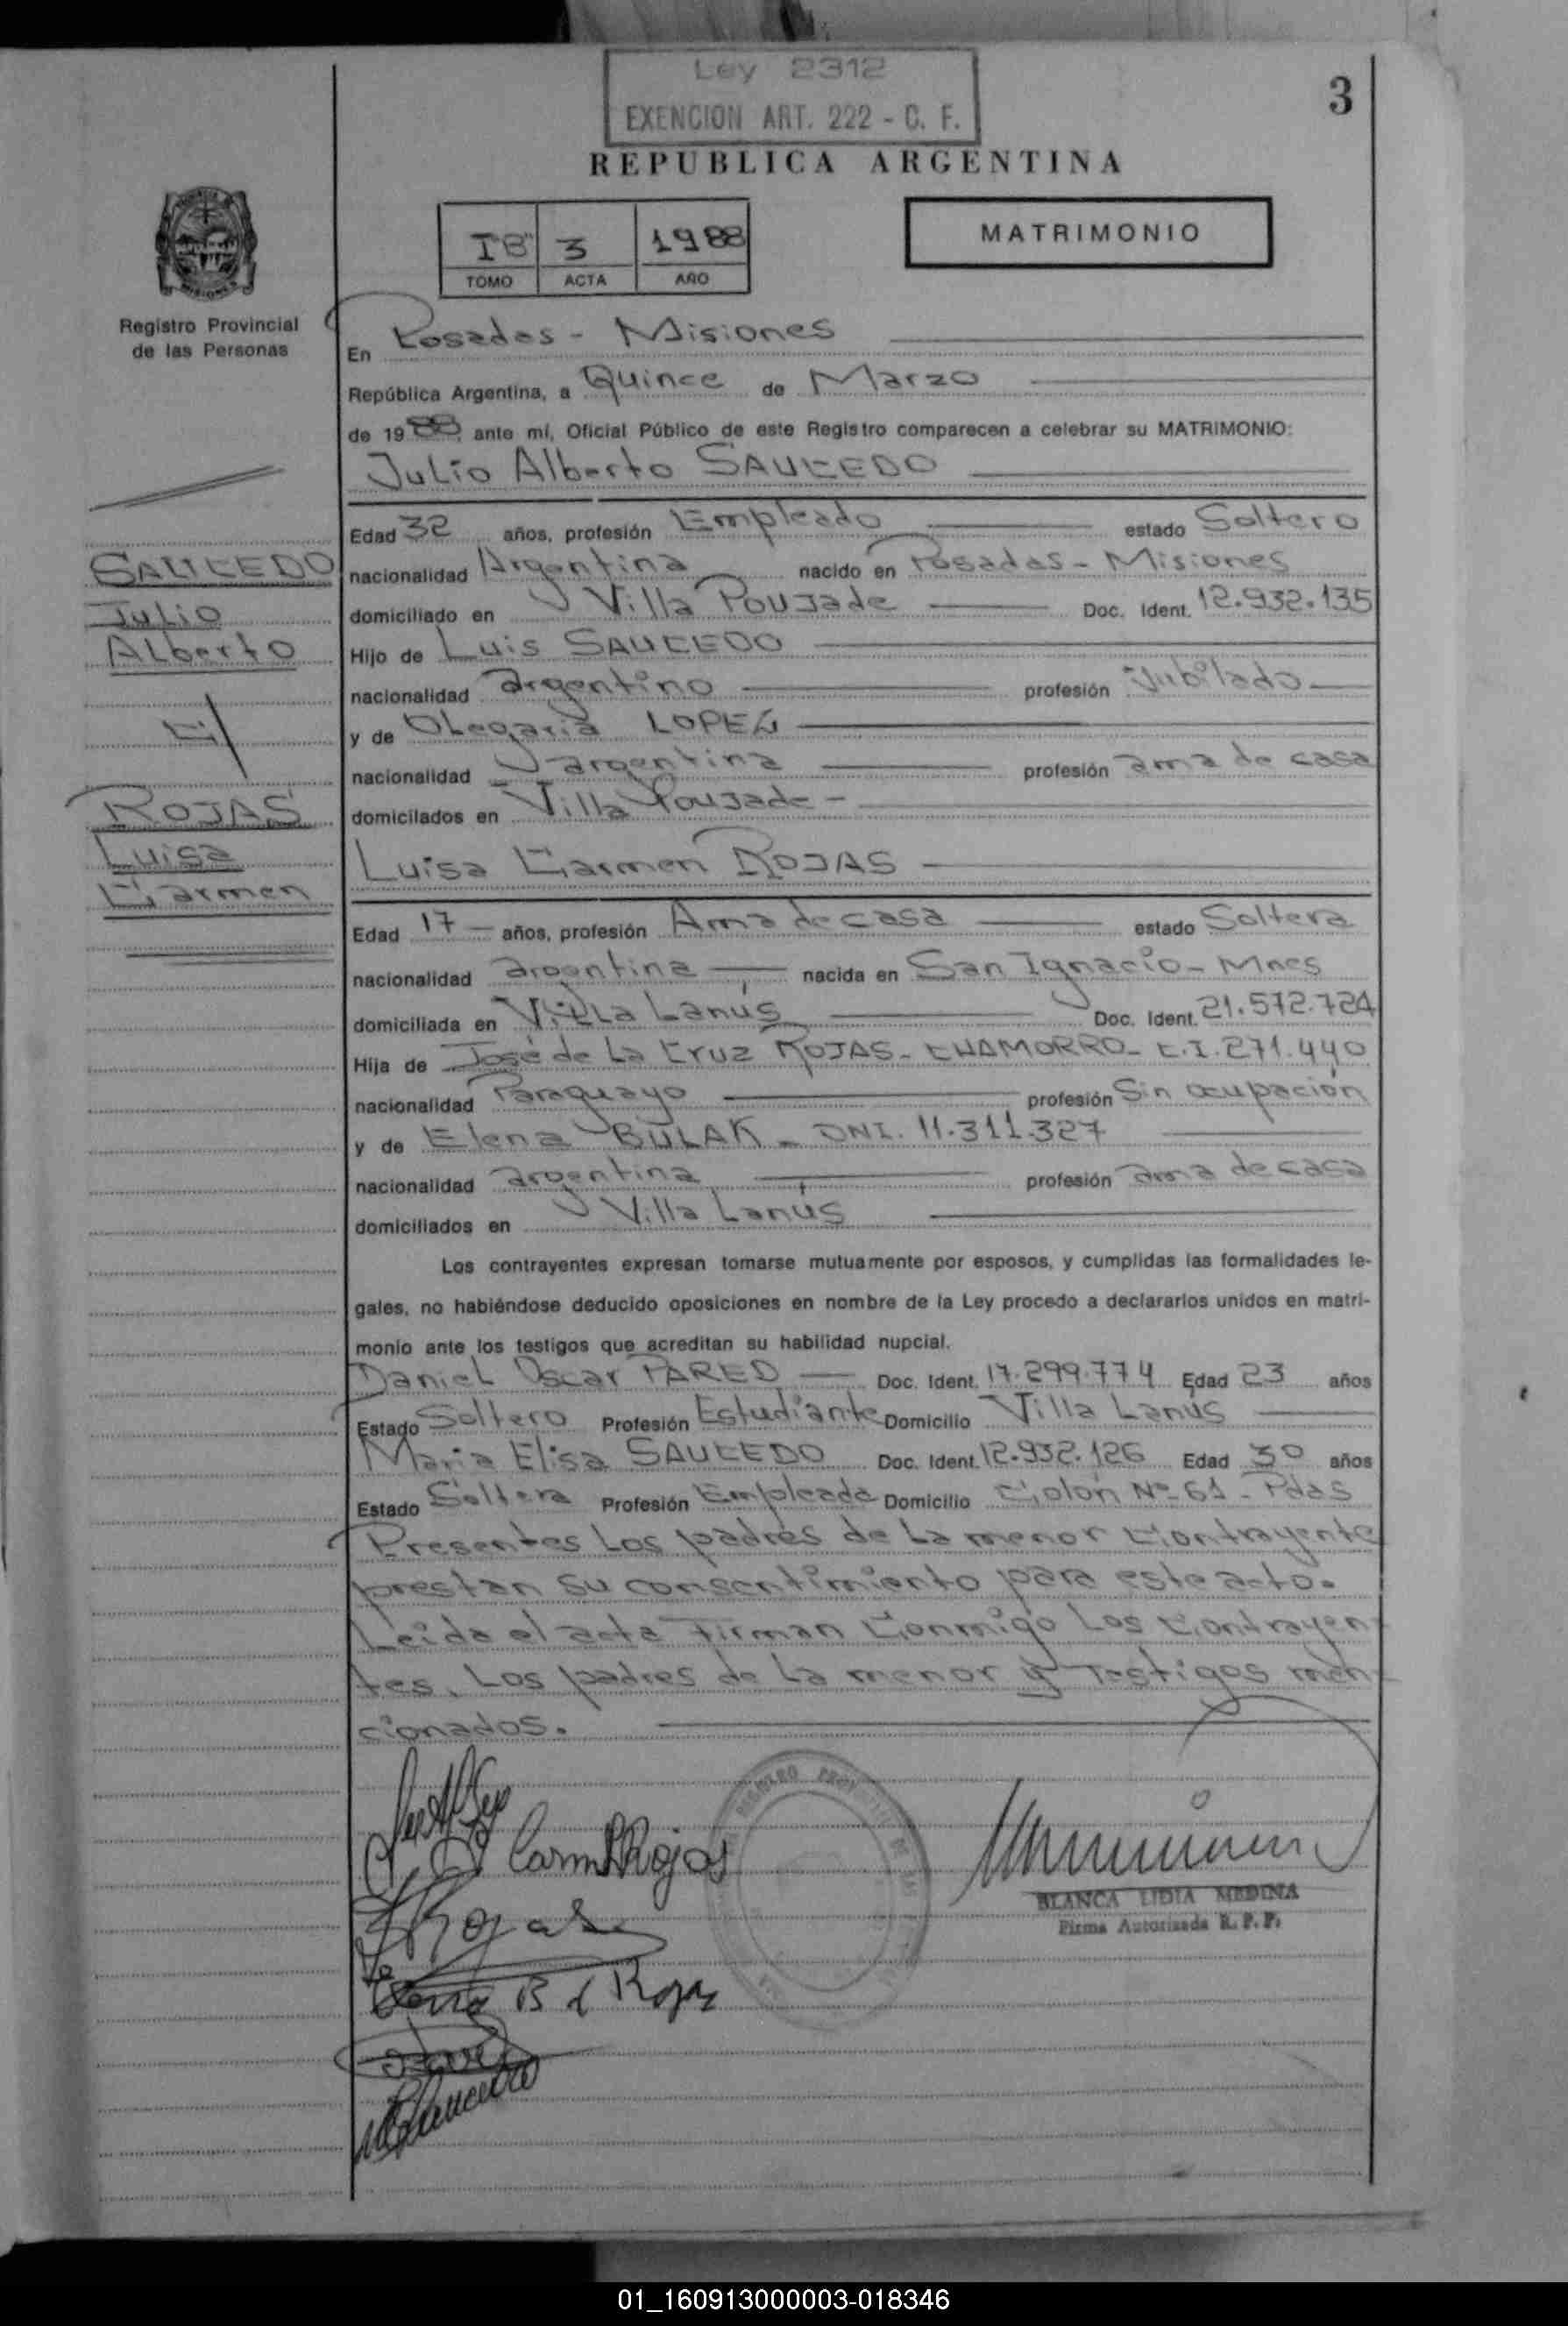 Ley 2312
EXENCION ART. 222 - C. F.
3
REPUBLICA ARGENTINA
MISIONES
Registro Provincial
de las Personas
IB" 3 1988
TOMO ACTA AÑO
MATRIMONIO
En Posadas - Misiones
República Argentina, a Quince de Marzo
de 1988, ante mí, Oficial Público de este Registro comparecen a celebrar su MATRIMONIO:
Julio Alberto SAUCEDO
SAUCEDO
Julio
Alberto
C/
ROJAS
Luisa
Carmen
Edad 32 años, profesión Empleado estado Soltero
nacionalidad Argentina nacido en Posadas - Misiones
domiciliado en Villa Poujade Doc. Ident. 12.932.135
Hijo de Luis SAUCEDO
nacionalidad argentino profesión jubilado
y de Olegaria LOPEZ
nacionalidad argentina profesión ama de casa
domicilados en Villa Poujade -
Luisa Carmen ROJAS
Edad 17 - años, profesión Ama de casa estado Soltera
nacionalidad argentina nacida en San Ignacio - Mnes
domiciliada en Villa Lanús Doc. Ident. 21.572.724
Hija de José de La Cruz ROJAS - CHAMORRO - C.I. 271.440
nacionalidad Paraguayo profesión Sin ocupación
y de Elena BULAK - DNI. 11.311.327
nacionalidad argentina profesión ama de casa
domiciliados en Villa Lanús
Los contrayentes expresan tomarse mutuamente por esposos, y cumplidas las formalidades le-
gales, no habiéndose deducido oposiciones en nombre de la Ley procedo a declararlos unidos en matri-
monio ante los testigos que acreditan su habilidad nupcial.
Daniel Oscar PARED Doc. Ident. 17.299.774 Edad 23 años
Estado Soltero Profesión Estudiante Domicilio Villa Lanus
Maria Elisa SAUCEDO Doc. Ident. 12.932.126 Edad 30 años
Estado Soltera Profesión Empleada Domicilio Colón Nº 61 - Pdas
Presentes Los padres de La menor Contrayente
prestan su consentimiento para este acto.
Leida el acta Firman Conmigo Los Contrayen-
tes, Los padres de La menor y Testigos men-
cionados.
Carm Rojas
Rojas
Elena B d Rojas
BLANCA LIDIA MEDINA
Firma Autorizada R. P. P.
01_160913000003-018346